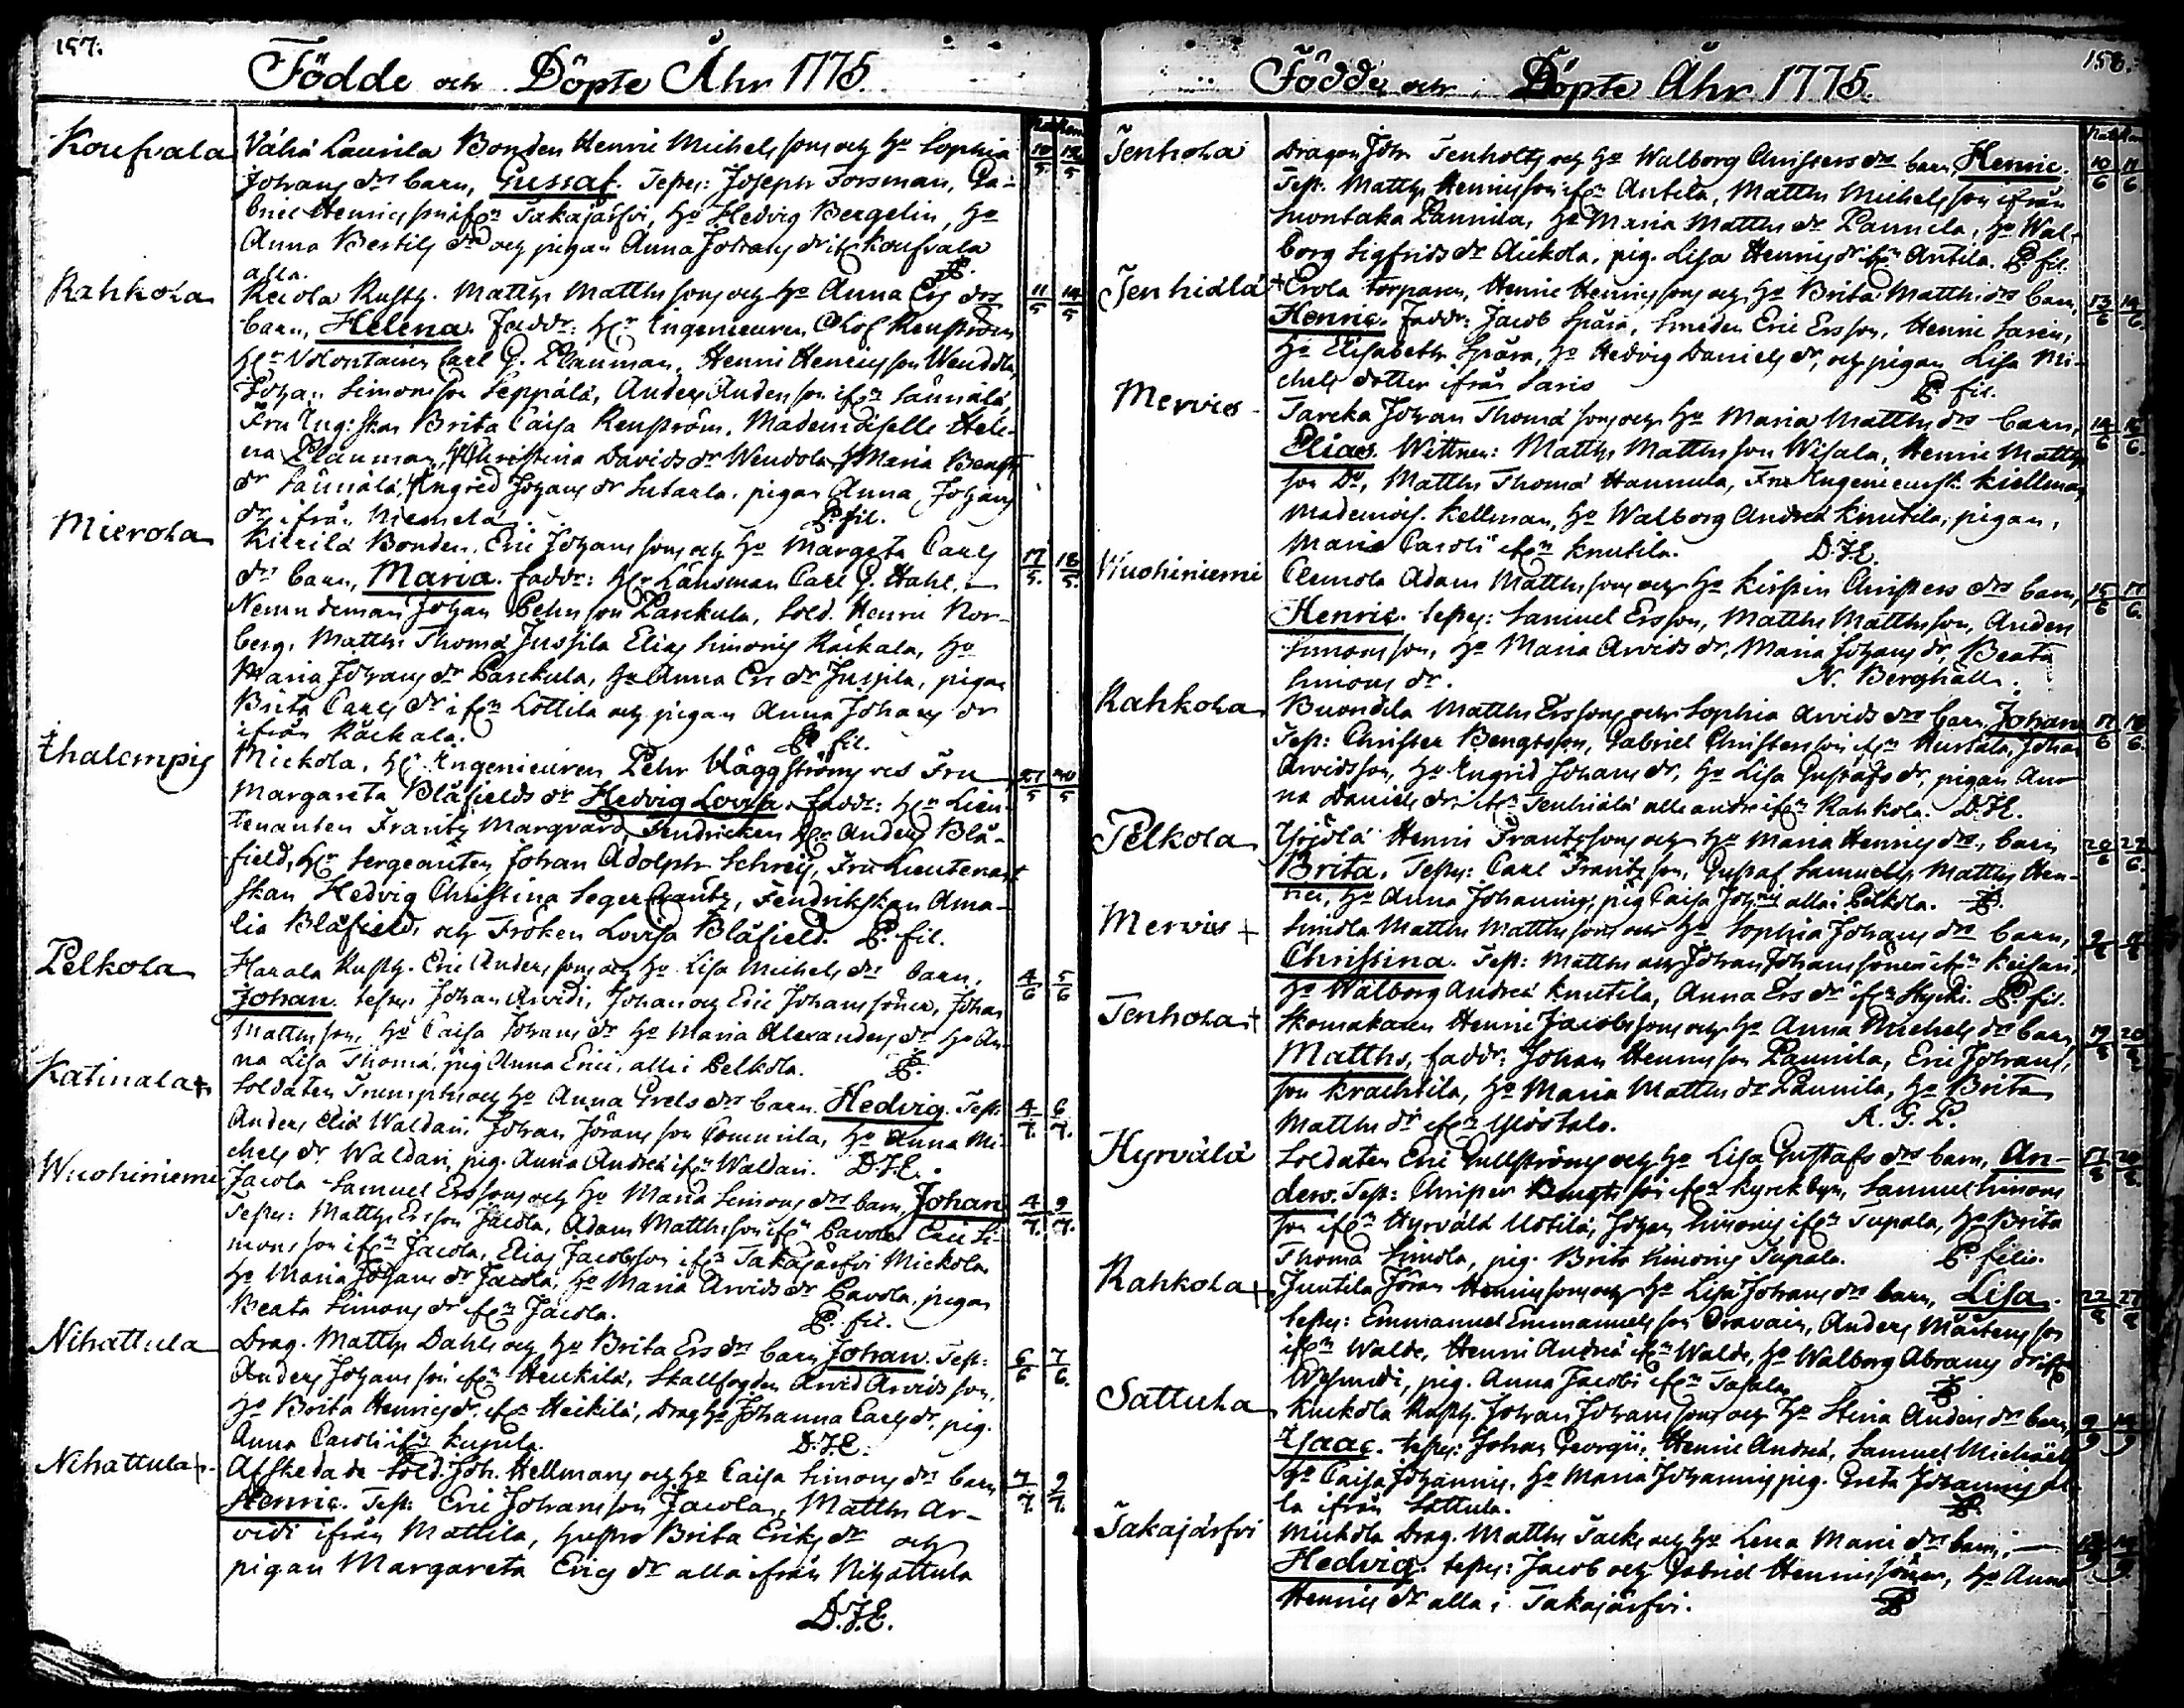 157.
Födde och Döpte Åhr 1775.
Koufvala
Vähä Laurila Bonden Henric Michels sons och Ho Sophia 10/5 12/5
Johans drs barn, Gustaf. Testes: Joseph Forsman, Ga-
briel Henrics son ifrn Takajärfvi, Ho Hedvig Bergelin, Ho
Anna Bertils dr och pigan Anna Johans dr ifr Koufvala
alla.
Rahkola
Reiola Rusth. Matths Matths sons och Ho Anna Ers drs 11/5 14/5
barn, Helena. Faddr: Hr Ingenieuren Olof Renström
Hr Volontairen Carl G. Planman, Henric Henrics son Wendola,
Johan Simonsson Seppälä, Anders Anders son ifrn Sännälä,
Fru Ing:skan Brita Caisa Renström, Mademoiselle Hele-
na Planman, H Christina Davids dr Wendola, H Maria Bengts
dr Sännälä, H Ingred Johans dr Sutarla, pigan Anna Johans
dr ifrån Niemelä. P. fil.
Mierola
Kirrilä Bonden Eric Johans sons och Ho Margeta Carls 17/5. 18/5.
drs barn, Maria. faddr: Hr Länsman Carl G. Hahl,
Nemndeman Johan Pehrsson Parckula, Sold. Henric Nor-
berg, Matths Thomä Jussila Elias Simonis Räikala, Ho
Maria Johans dr Parckula, Ho Anna Ers dr Jussila, pigan
Brita Carls dr ifrn Lottila och pigan Anna Johans dr
ifrån Räikala. P. fil.
Ihalempis
Mickola, Hr Ingenieuren Pehr Häggströms och Fru 21/5
Margareta Blåfields dr Hedvig Lovisa. faddr: Hr Lieu-
tenanten Frantz Marqvard, Fendricken Hr Anders Blå-
field, Hr Sergeanten Johan Adolph Schreij, Fru Lieutenant
skan Hedvig Christina Segercrantz, Fendrikskan Ama-
lia Blåfield, och Fröken Lovisa Blåfield. P. fil.
Pelkola
Harala Rusth. Eric Anders sons och Ho Lisa Michels drs barn, 4/6 5/6
Johan. testes. Johan Arvidi, Johan och Eric Johans söner, Johan
Matths son, Ho Caisa Johans dr Ho Maria Alexanders dr Ho An-
na Lisa Thomä, pig Anna Erici, alla i Pelkola.
Katinala +
Soldaten Trumphs och Ho Anna Grels drs barn. Hedvig. Test: 4/7. 6/7.
Anders Eliä Waldari, Johan Jörans son Commila, Ho Anna Mi-
chels dr Waldari, pig. Anna Andreä ifrn Waldari. D.J.E.
Wuohiniemi
Jacola Samuel Ers sons och Ho Maria Simons drs barn, Johan 4/7. 9/7.
Testes: Matths Ersson Jacola, Adam Matthsson ifrn Pavola, Eric Si-
mons son ifrn Jacola, Elias Jacobsson ifrn Takajärfvi Mickola
Ho Maria Johans dr Jacola, Ho Maria Arvids dr Pavola, pigan
Beata Simons dr ifrn Jacola. P. fil.
Nihattula
Drag. Matths Dahls och Ho Brita Ers drs barn Johan. Test: 6/6 7/6.
Anders Johans son ifrn Heikilä, Skallfogden Arvid Arvids son,
Ho Brita Henrics dr ifrn Heikilä, Drag Ho Johanna Carls dr, pig.
Anna Caroli ifrn Kupula. D.J.E.
Nihattula +
Afskedade Sold. Joh. Hellmans och Ho Caisa Simons drs barn 7/7. 9/7.
Henric. Test: Eric Johansson Jacola, Matths Ar-
vidi ifrån Mattila, hustro Brita Eriks dr och
pigan Margareta Erics dr alla ifrån Nihattula
D.J.E.
158.
Födde och Döpte Åhr 1775.
Tenhola
Dragon Joh. Tenholtz och Ho Walborg Christers drs barn, Henric. 10/6 11/6
Test. Matths Henrics son ifrn Antila, Matths Michels son ifrån
Suontaka Launila, Ho Maria Matths dr Launila, Ho Wal-
borg Sigfrids dr Aickola, pig. Lisa Henrics dr ifrn Antila. P. fil.
Tenhiälä +
Erola Torparen, Henric Henrics sons och Ho Brita Matths drs barn, 13/6 14/6.
Henric. Faddr: Jacob Spåra, Smeden Eric Ersson, Henric Saren,
Ho Elisabeth Spåra, Ho Hedvig Daniels dr, och pigan Lisa Mi-
chels dotter ifrån Saris P. fil.
Mervis
Tareka Johan Thomä sons och Ho Maria Matths drs barn, 14/6 16/6.
Elias. Wittnen: Matths Matths son Wisala, Henric Matths
son Do, Matths Thomä Hannula, Fru Ingenieursk. Kiellman
Mademois. Kellman, Ho Walborg Andreä Knutila, pigan,
Maria Caroli ifrn Knutila. D.J.E.
Wuohiniemi
Clemola Adam Matths sons och Ho Kirstin Christers drs barn, 15/6 17/6.
Henric. testes: Samuel Ersson, Matths Matthsson, Anders
Simons son, Ho Maria Arvids dr, Maria Johans dr, Beata
Simons dr. N. Berghäll.
Rahkola
Buondila Matths Ers sons och Sophia Arvids drs barn, Johan 17/6 18/6.
Test: Christer Bengtsson, Gabriel Christersson ifrn Hurtala, Johan
Arvidsson, Ho Ingrid Johans dr, Ho Lisa Gustafs dr, pigan An-
na Daniels dr ifrn Tenhiälä alla andre ifrn Rahkola. D.J.E.
Pelkola
Yrjölä Henric Frantz sons och Ho Maria Henrics drs, barn
Brita. Testes: Carl Frantz son, Gustaf Samuels, Matths Hen-
rici, Ho Anna Johannis, pig Caisa Johnis alla i Pelkola.
Mervis +
Simola Matths Matths sons och Ho Sophia Johans drs barn,
Christina. Test: Matths och Johan Johans söner ifrn Keisari,
Ho Walborg Andreä Knutila, Anna Ers dr ifrn Hycki. P. fil.
Tenhola +
Skomakaren Henric Jacobs sons och Ho Anna Michels drs barn, 19/8 20/8
Matths, faddr: Johan Henricsson Launila, Eric Johans,
son Krachtila, Ho Maria Matths dr Launila, Ho Brita
Matths dr ifrn Yliöstalo. A. G. L.
Hyrvälä
Soldaten Eric Gullströms och Ho Lisa Gustafs drs barn, An-
ders. Test: Christer Bengts son ifrn Kyrckbyn, Samuel Simons
son ifrn Hyrvälä Uotila, Johan Simonis ifrn Tupala, Ho Brita
Thomä Simola, pig. Brita Simonis Tupala. P. filio.
Rahkola +
Juntila Jöran Henrics sons och Ho Lisa Johans drs barn, Lisa. 22/8 27/8
testes: Emmanuel Emmanuels son Oravain, Anders Mårtens son
ifrn Walde, Henric Andreä ifrn Walde, Ho Walborg Abrams dr ifrn
pig. Anna Jacobi ifrn
Sattula
Kuckola Rusth. Johan Johans sons och Ho Stina Anders drs barn,
Isaac. testes: Johan Georgii, Henric Andreä, Samuel Michaels
Ho Caisa Johannis, Ho Maria Johannis pig. Greta Johannis al-
la ifrån Sattula.
Takajärfvi
Mickola Drag. Matths Tacks och Ho Lena Marie drs barn,
Hedvig. testes: Jacob och Gabriel Henrics söner, Ho Anna
Henrics dr alla i Takajärfvi.